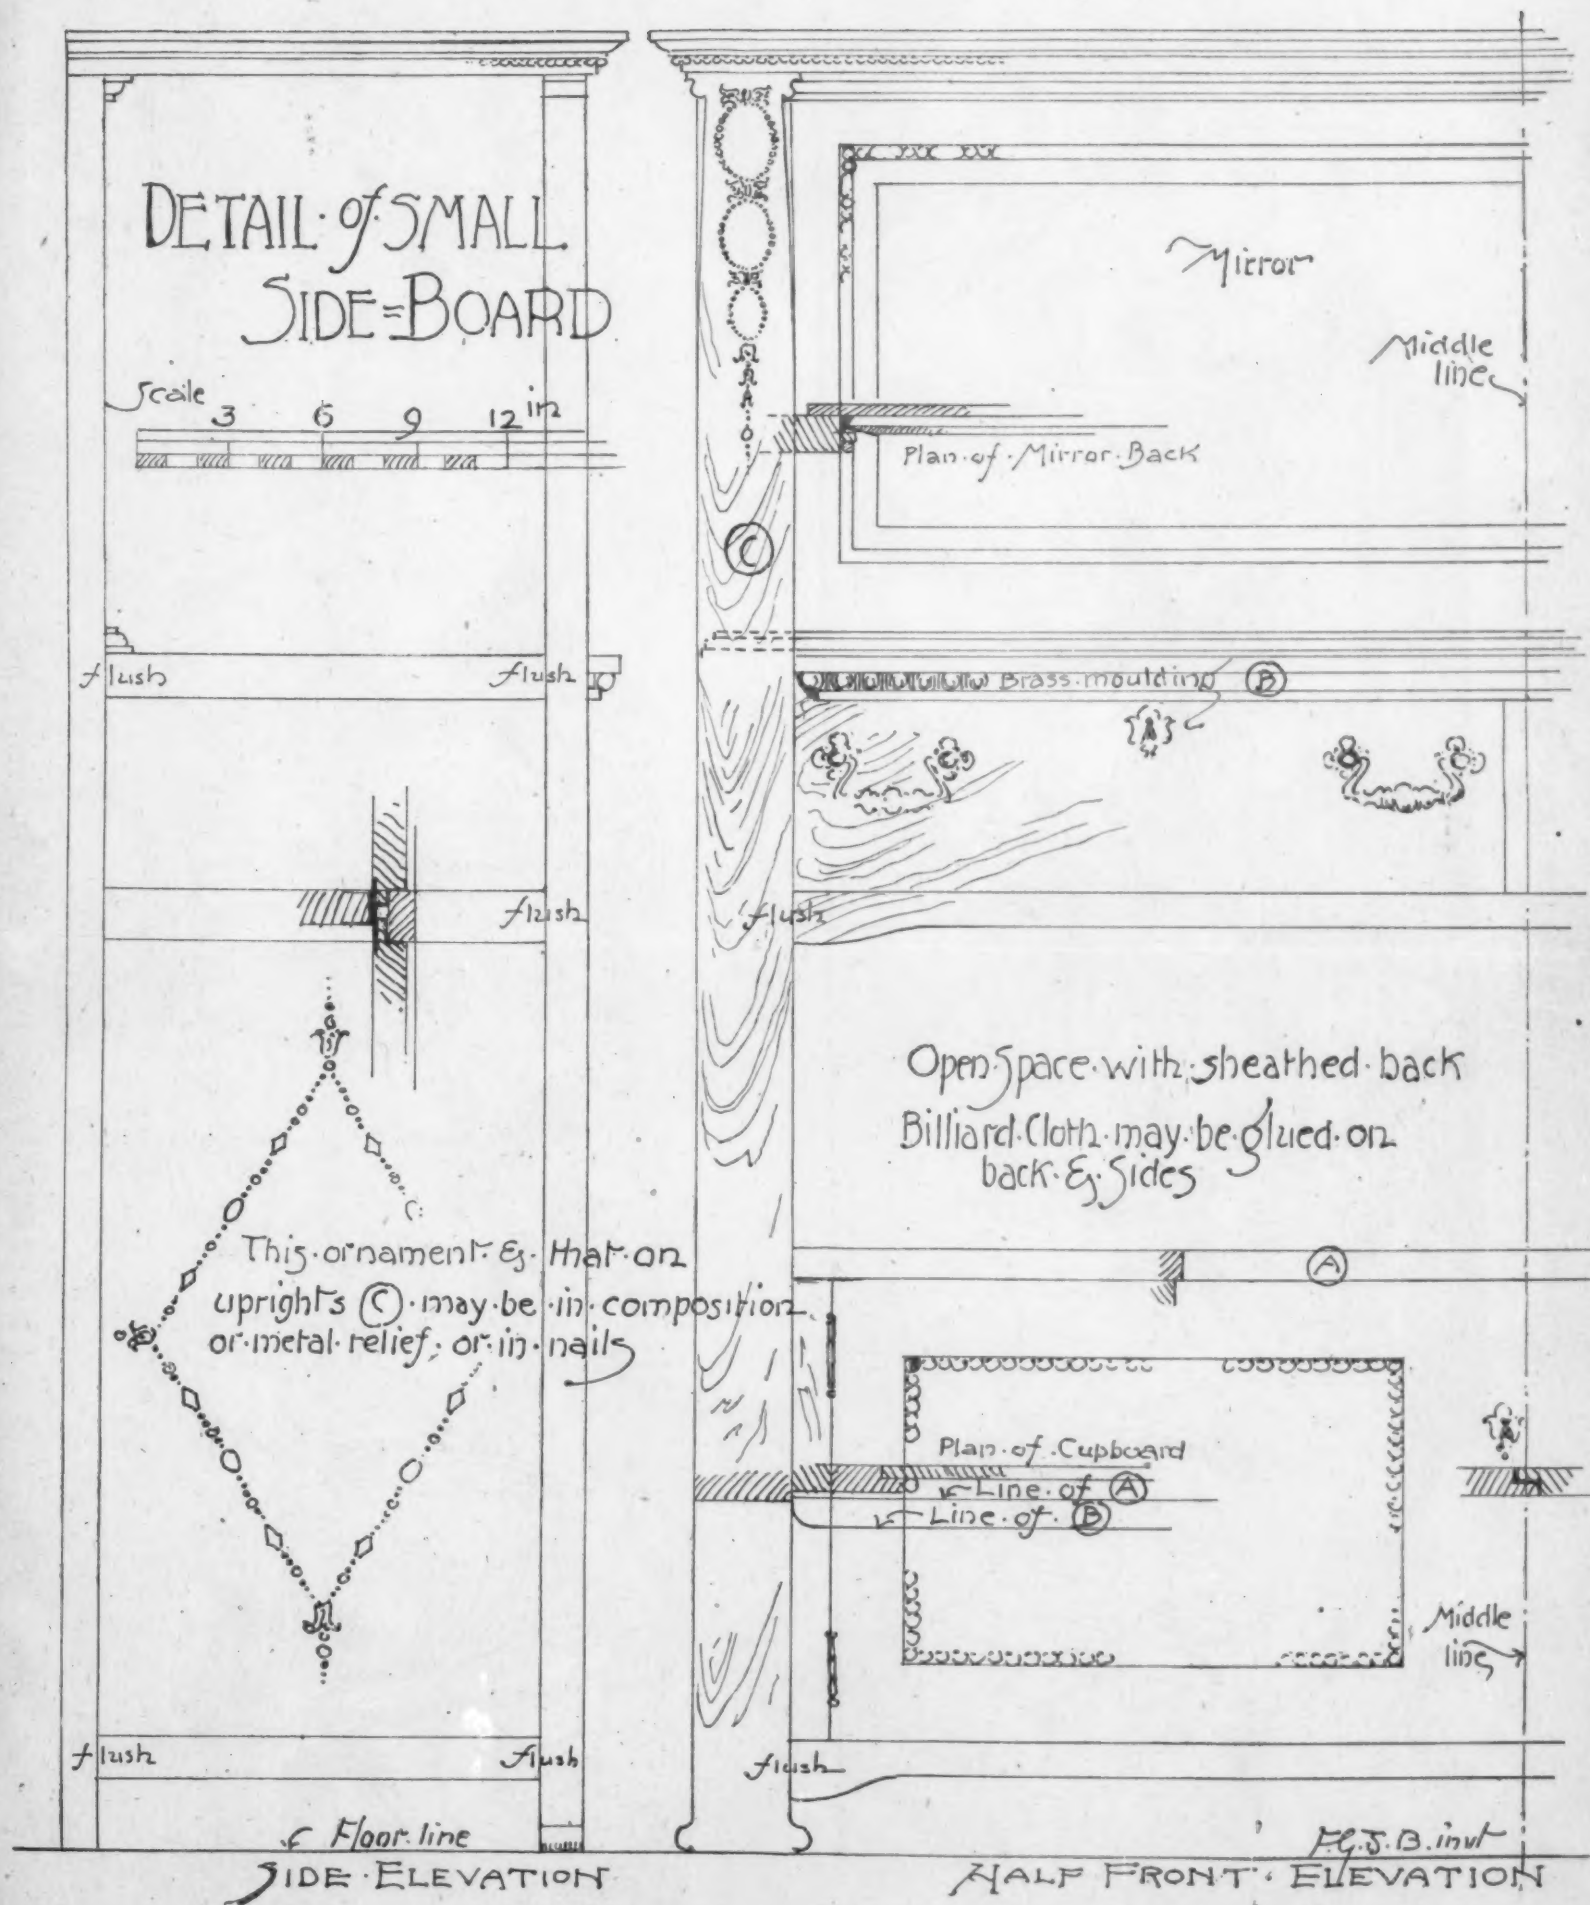 DETAIL · of · SMALL
SIDE = BOARD
Scale
3 6 9 12 in
flush flush
flush
This · ornament · & · that · on
uprights (C) · may · be · in · composition
or · metal · relief ; or · in · nails
flush flush
Floor · line
SIDE · ELEVATION
Mirror
Middle
line
Plan · of · Mirror · Back
C
Brass · moulding B
flush
Open · Space · with · sheathed · back
Billiard · Cloth · may · be · glued · on
back · & · Sides
A
Plan · of · Cupboard
Line · of A
Line · of · B
Middle
line
flush
F.G.J.B. invt
HALF FRONT · ELEVATION